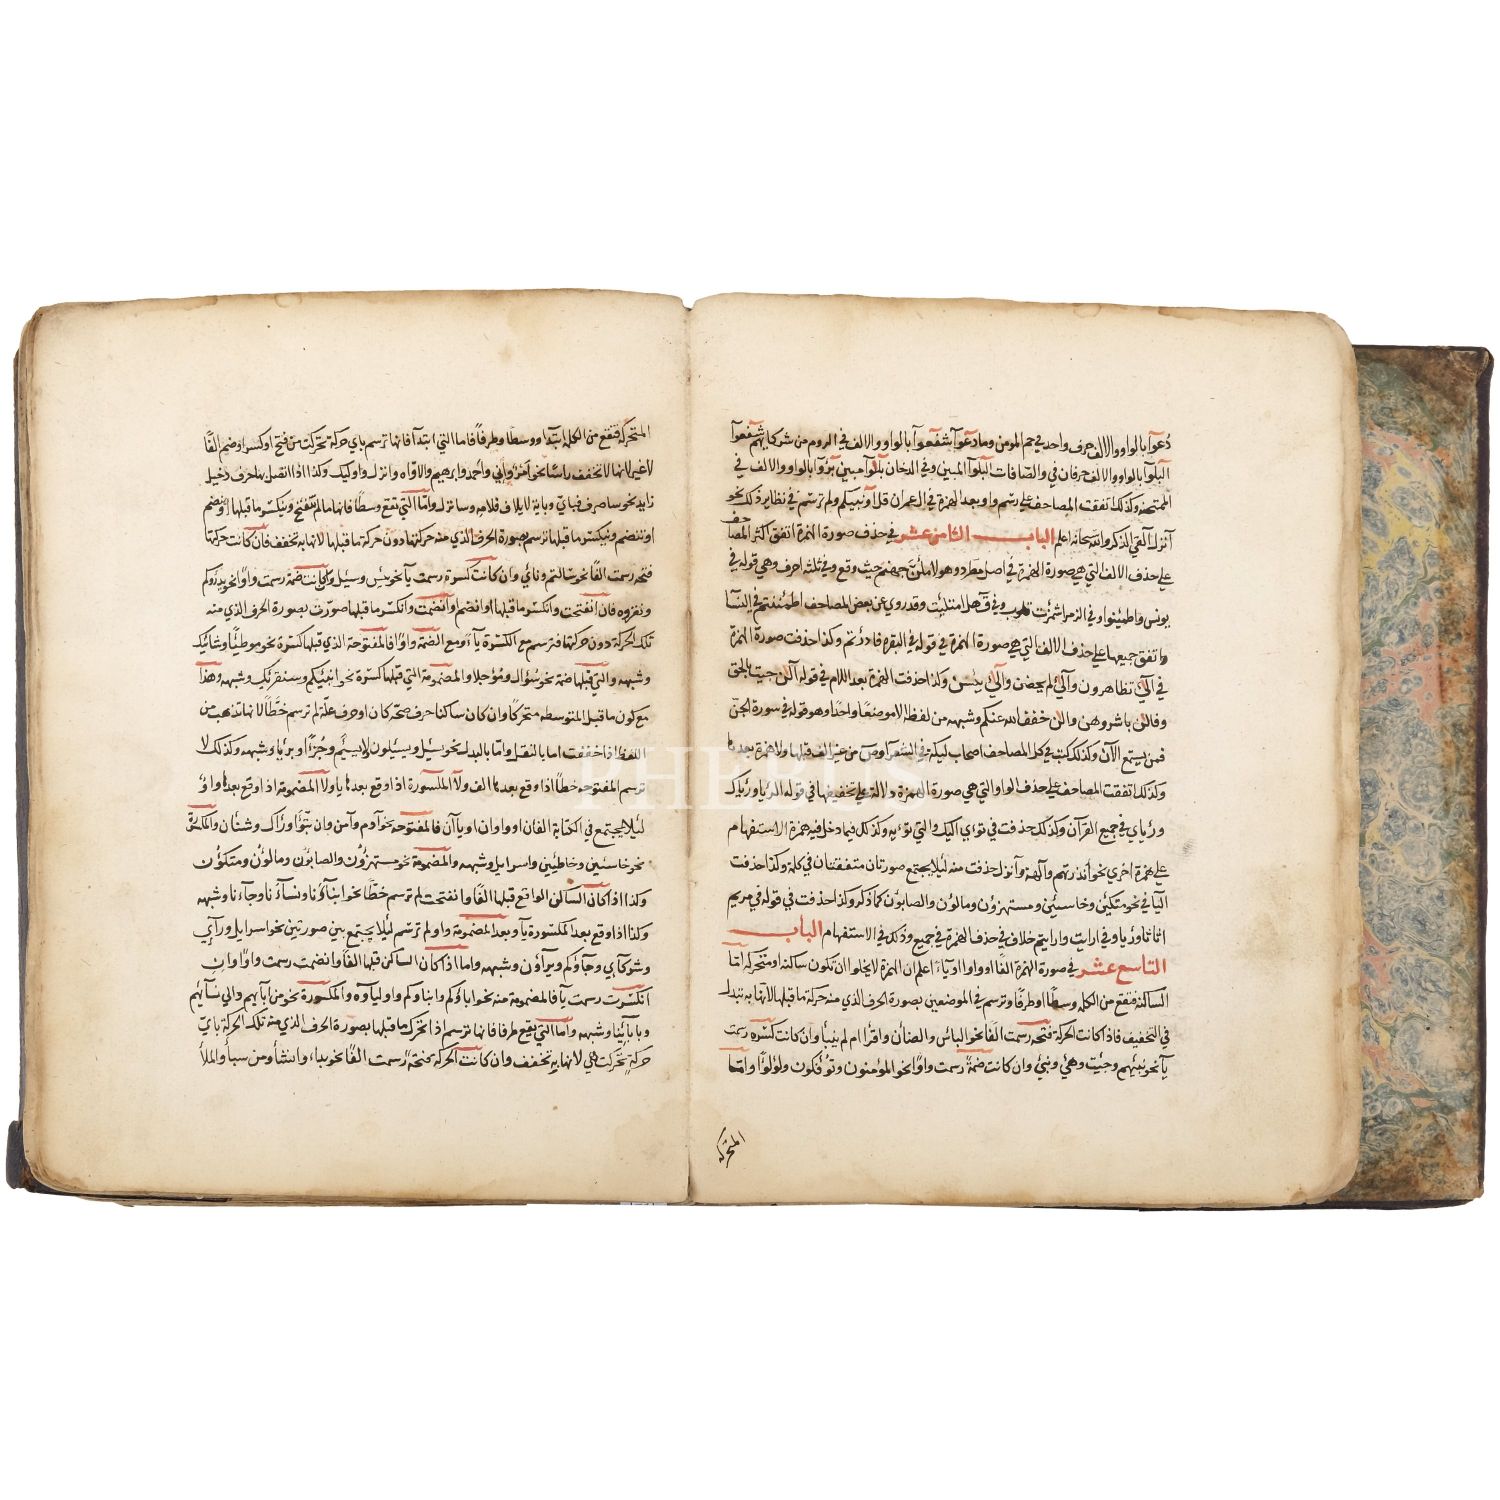 دعوآ بالواو والالف حرف واحد في حم المومن وما دعوآ شفعوآ بالواو والالف في الروم من شركايهم شفعوآ
البلوآ بالواو والالف حرفان في والصافات البلوآ المبين وفي الدخان بلوآ مبين برؤا بالواو والالف في
الممتحنه وكذلك اتفقت المصاحف على رسم واو بعد الهمزة في ال عمران قل اونبيكم ولم ترسم في نظاير ذلك نحو
آنزل آلقي الذكر والله سبحانه اعلم الباب الثامن عشر في حذف صورة الهمزة اتفق اكثر المصاحف
على حذف الالف التي هي صورة الهمزة في اصل مطرد وهو لاملن جهنم حيث وقع وفي ثلثه احرف وهي قوله في
يونس واطمنوا وفي الزمر اشمزت قلوب وفي ق هل امتليت وقد روي عن بعض المصاحف اطمئنتم في النسآ
واتفق جميعها على حذف الالف التي هي صورة الهمزة في قوله في البقرة فادرئتم وكذا حذفت صورة الهمزة
في آلئ تظاهرون وآلئ لم يحضن وآلئ يئسن وكذا حذفت الهمزة بعد اللام في قوله آلن جيت بالحق
وفالئن باشروهن والئن خفف الله عنكم وشبهه من لفظه الا موضعا واحدا وهو قوله في سورة الجن
فمن يستمع الآن وكذلك كتب في كل المصاحف اصحاب ليكة في الشعرا وص من غير الف قبلها ولا همزة بعدها
وكذلك اتفقت المصاحف على حذف الواو التي هي صورة الهمزة دلالة على تخفيفها في قوله الريا ورياك
ورياي في جميع القران وكذلك حذفت في توي اليك والتي تويه وكذلك فيما دخل فيه همزة الاستفهام
على همزة اخري نحو أنذرتهم وآلهة وآنزل حذفت منه ليلا يجتمع صورتان متفقتان في كلمة وكذا حذفت
اليا في نحو متكئين وخاسئين ومستهزؤن ومالؤن والصابؤن كما ذكر وكذا حذفت في قوله في مريم
اثاثا وريا وفي ارايت وارايتم خلاف في حذف الهمزة في جميع وذلك في الاستفهام الباب
التاسع عشر في صورة الهمزة الفا او واوا او يآء اعلم ان الهمزة لا يخلوا ان تكون ساكنة او متحركة امّا
الساكنة فتقع من الكلمه وسطا او طرفا وترسم في الموضعين بصورة الحرف الذي منه حركة ما قبلها لانها به تبدل
في التخفيف فاذا كانت الحركة فتحه رسمت الفا نحو الباس والضأن واقرا ام لم ينبأ وان كانت كسره رسمت
يآ نحو نبئهم وجئت وهيي ونبيئ وان كانت ضمة رسمت واوًا نحو المؤمنون وتؤفكون ولؤلؤا وامّا
المتحركه
المتحركة فتقع من الكلمه ابتدآ ووسطا وطرفا فاما التي ابتدآ فانها ترسم باي حركة تحركت من فتح او كسر او ضم الفًا
لا غير لانها لا تخفف راسا نحو أمر وأبي وأحمد وابرهيم والاواه وانزل واوليك وكذا اذا اتصل بها حرف دخيل
زايد نحو ساصرف فباي وباية لايلاف فلامه وسانزل وامّا التي تقع وسطا فانها ما لم تنفتح وينكسر ما قبلها او ينضم
او تنضم وينكسر ما قبلها ترسم بصورة الحرف الذي منه حركتها دون حركة ما قبلها لانها به تخفف فان كانت حركتها
فتحه رسمت الفا نحو سالتم ونأي وان كانت كسرة رسمت يآ نحو يئس وسئل وان كانت ضمة رسمت واوا نحو يذرؤكم
ونقروه فان انفتحت وانكسر ما قبلها او انضم او انضمت وانكسر ما قبلها صورت بصورة الحرف الذي منه
تلك الحركة دون حركتها فترسم مع الكسرة يآء ومع الضمة واوا فالمفتوحة الذي قبلها كسرة نحو موطيئا وشانيك
وشبهه والتي قبلها ضمة نحو سؤال ومؤجلا والمضمومة التي قبلها كسرة نحو انبئكم وسنقرئك وشبهه وهذا
مع كون ما قبل المتوسطه متحركا وان كان ساكنا حرف صحة كان او حرف علّة لم ترسم خطًّا لانها تذهب من
اللفظ اذا خففت اما بالنقل وامّا بالبدل نحو يسئل ويسئلون لا يسئم وجزءا وبريا وشبهه وكذلك لا
ترسم المفتوحه خطا اذا وقع بعدها الف ولا المكسورة اذا وقع بعدها يا ولا المضمومة اذا وقع بعدها واو
ليلا يجتمع في الكتابة الفان او واوان او يآن فالمفتوحه نحو آدم وآمن وان تبوا ورآك وشنان والمكسورة
نحو خاسئين وخاطئين واسرايل وشبهه والمضمومة نحو مستهزؤن والصابؤن ومالؤن ومتكؤن
وكذا اذا كان الساكن الواقع قبلها الفًا وانفتحت لم ترسم خطا نحو ابنآؤنا ونسآءنا وجآءنا وشبهه
وكذا اذا وقع بعد المكسورة يآ وبعد المضمومة واو لم ترسم ليلا يجتمع بين صورتين نحو اسرايل ورآئي
وشركآءي وجآؤكم ويرآؤن وشبهه واما اذا كان الساكن قبلها الفا وانضمت رسمت واوًا وان
انكسرت رسمت يآ فالمضمومة منه نحو اباؤكم وابناوكم واولياوه والمكسورة نحو من آبايهم والي نسآئهم
وبابآئنا وشبهه وأما التي يقع طرفا فانها ترسم اذا تحرك ما قبلها بصورة الحرف الذي منه تلك الحركة بايّ
حركةٍ تحركت هي لانها به تخفف وان كانت الحركة فتحة رسمت الفًا نحو بداء وانشأ ومن سبأ والملأ